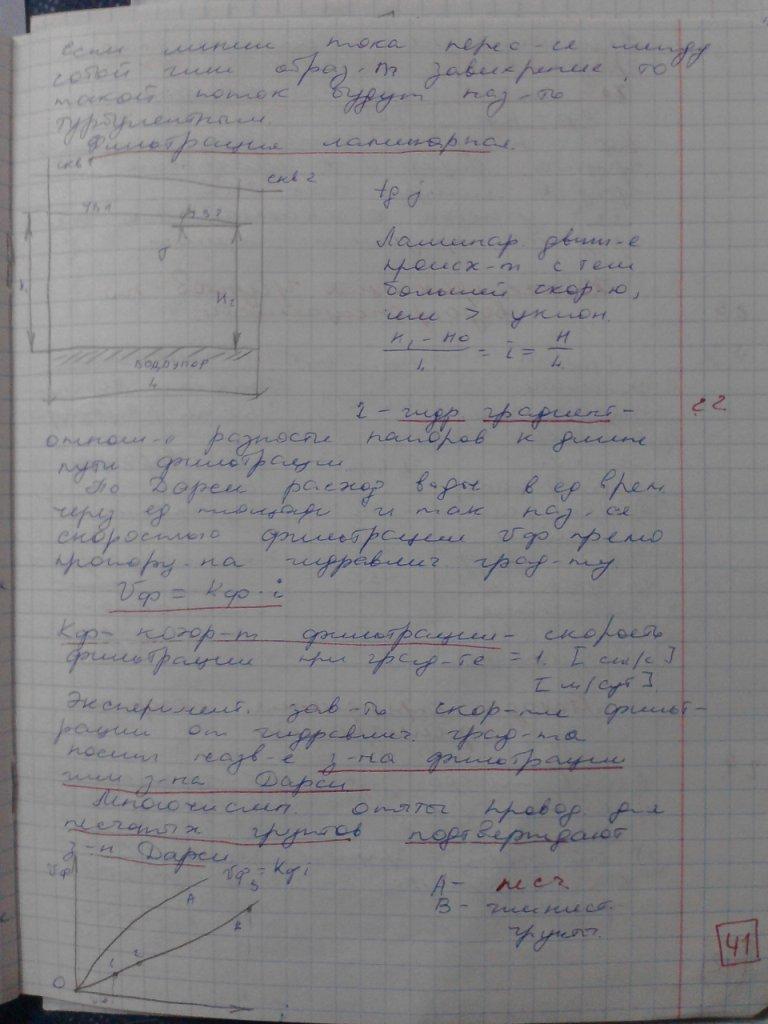 если линии тока перес-ся между
собой или образ-т завихрение, то
такой поток будут наз-ть
турбулентным.
Фильтрация ламинарная.
скв 1
скв 2
tg j
Ламинар. движ-е
происх-т с тем
большей скор-ю,
чем > уклон.
H₂
водоупор
L
= i = H/L
I - гидр градиент -
отнош-е разности напоров к длине
пути фильтрации
По Дарси расход воды в ед врем.
через ед площади и так наз-ся
скоростью фильтрации Vф прямо
пропорц-на гидравлич. град-ту.
Vф = Кф · i
Кф - коэф-т фильтрации - скорость
фильтрации при град-те = 1. [см/с]
[м/сут]
Эксперимент. зав-ть скор-ти фильт-
рации от гидравлич. град-та
носит назв-е з-на фильтрации
или з-на Дарси
Многочислен. опыты провод. для
песчаных грунтов подтверждают
з-н Дарси
Vф
Vф = Кф i
A
B
1
2
0
i
A - песч
B - глинист.
грунты.
41